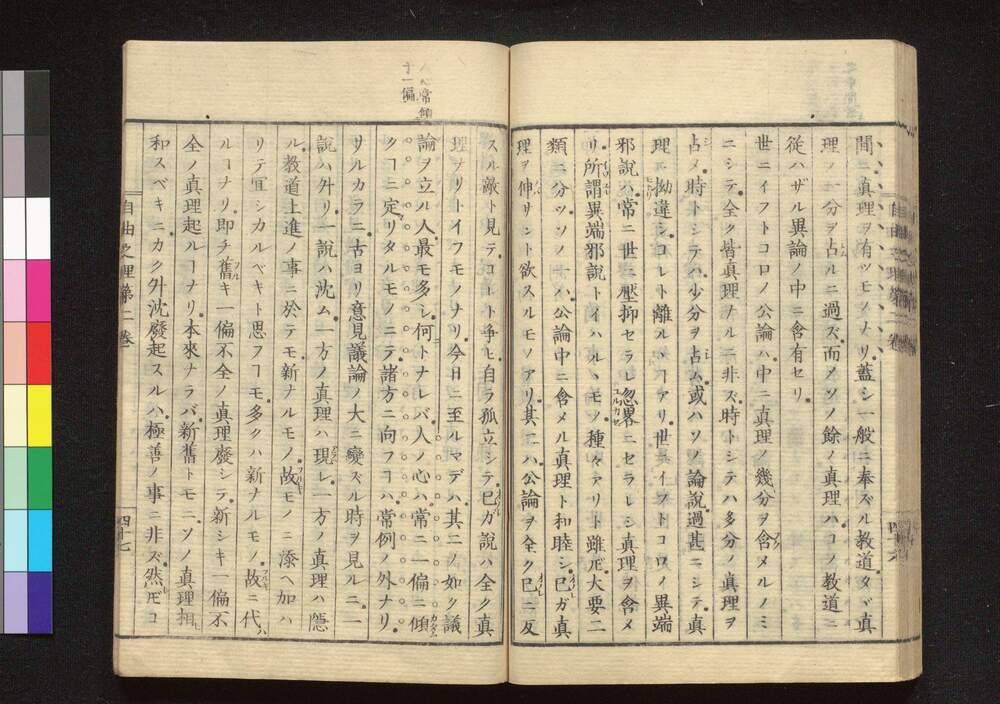 間ニ真理ヲ有ツモノナリ蓋シ一般ニ奉ズル教道タヾ真
理ノ一分ヲ占ルニ過ズ而メソノ餘ノ真理ハコノ教道ニ
從ハザル異論ノ中ニ含有セリ
世ニイフトコロノ公論ハ中ニ真理ノ幾分ヲ含メルノミ
ニシテ全ク皆真理ナルニ非ズ時トシテハ多分ノ真理ヲ
占メ時トシテハ少分ヲ占ム或ハソノ論説過甚ニシテ真
理ト拗違シコレト離ルヽヿアリ世ニイフトコロノ異端
邪説ハ常ニ世ニ壓抑セラレ忽畧ニセラレシ真理ヲ含メ
リ所謂異端邪説トイハルヽモノ種々アリト雖𪜈大要二
類ニ分ツソノ一ハ公論中ニ含メル真理ト和睦シ已ガ真
理ヲ伸サント欲スルモノアリ其二ハ公論ヲ全ク已ニ反
スル敵ト見テコレト爭ヒ自ラ狐立シテ已ガ說ハ全ク真
理ヲリトイフモノナリ今日ニ至ルマデハ其二ノ如ク議
論ヲ立ル人最モ多シ何トナレバ人ノ心ハ常ニ一偏ニ傾
クヿニ定リタルモノニテ諸方ニ向フヿハ常例ノ外ナリ
サルカラニ古ヨリ意見議論ノ大ニ變ズル時ヲ見ルニ一
說ハ外リ一說ハ沈ム一方ノ真理ハ現レ一方ノ真理ハ隠
ル教道上進ノ事ニ於テモ新ナルモノ故モノニ添ヘ加ハ
リテ冝シカルベキト思フヿモ多クハ新ナルモノ故ニ代
ルヿナリ即チ舊キ一偏不全ノ真理廢シテ新シキ一偏不
全ノ真理起ルヿナリ本來ナラバ新舊トモニソノ真理相
和スベキニカク外沈廢起スルハ極善ノ事ニ非ズ然𪜈コ
自由之理第二卷
四十七